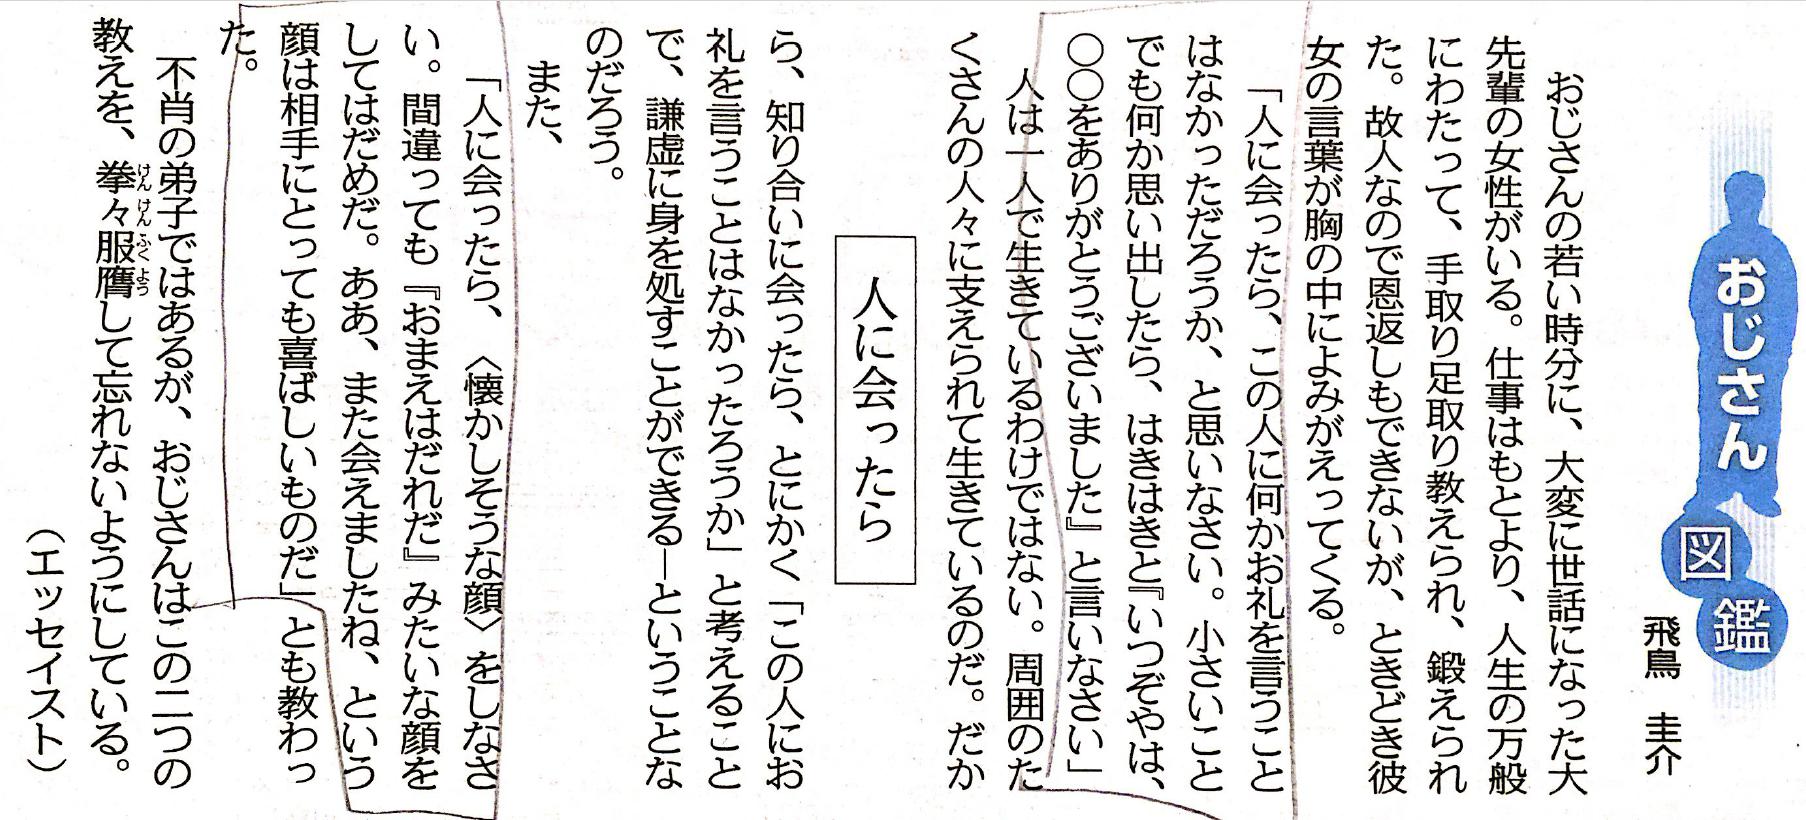 おじさん
図
鑑
飛鳥　圭介
　おじさんの若い時分に、大変に世話になった大
先輩の女性がいる。仕事はもとより、人生の万般
にわたって、手取り足取り教えられ、鍛えられ
た。故人なので恩返しもできないが、ときどき彼
女の言葉が胸の中によみがえってくる。
　「人に会ったら、この人に何かお礼を言うこと
はなかっただろうか、と思いなさい。小さいこと
でも何か思い出したら、はきはきと『いつぞやは、
〇〇をありがとうございました』と言いなさい」
　人は一人で生きているわけではない。周囲のた
くさんの人々に支えられて生きているのだ。だか
人に会ったら
ら、知り合いに会ったら、とにかく「この人にお
礼を言うことはなかったろうか」と考えること
で、謙虚に身を処すことができる―ということな
のだろう。
　また、
　「人に会ったら、〈懐かしそうな顔〉をしなさ
い。間違っても『おまえはだれだ』みたいな顔を
してはだめだ。ああ、また会えましたね、という
顔は相手にとっても喜ばしいものだ」とも教わっ
た。
　不肖の弟子ではあるが、おじさんはこの二つの
教えを、拳々服膺して忘れないようにしている。
けんけんふくよう
（エッセイスト）